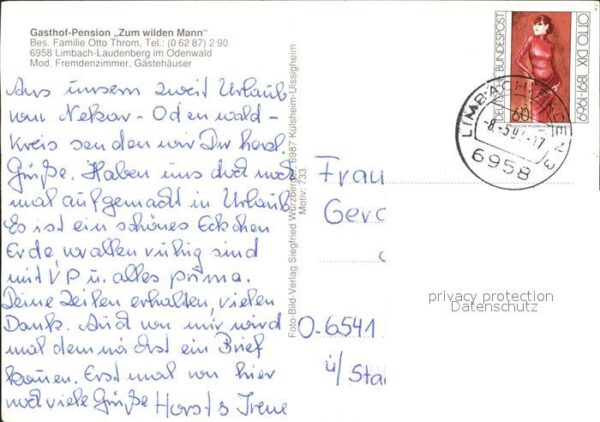 Gasthof-Pension „Zum wilden Mann"
Bes. Familie Otto Throm, Tel.: (0 62 87) 2 90
6958 Limbach-Laudenberg im Odenwald
Mod. Fremdenzimmer, Gästehäuser
Aus unserm zweit Urlaub
vom Nekar-Odenwald-
Kreis senden wir Dir herzl.
Grüße. Haben uns doch noch
mal aufgemacht in Urlaub
Es ist ein schönes Eckchen
Erde, vor allen ruhig sind
mit VP u. alles prima.
Deine Zeilen erhalten, vielen
Dank. Auch von mir wird
mal demnächst ein Brief
kommen. Erst mal von hier
noch viele Grüße Horst & Irene
Foto-Bild-Verlag Siegfried Würzberger, 6987 Külsheim-Uissigheim
Motiv: 733
DEUTSCHE BUNDESPOST
OTTO DIX 1891-1969
60
LIMBACH, BADEN
-8.-5.91-17
6958
Frau
Gero
O-6541
ü/Sta
privacy protection
Datenschutz